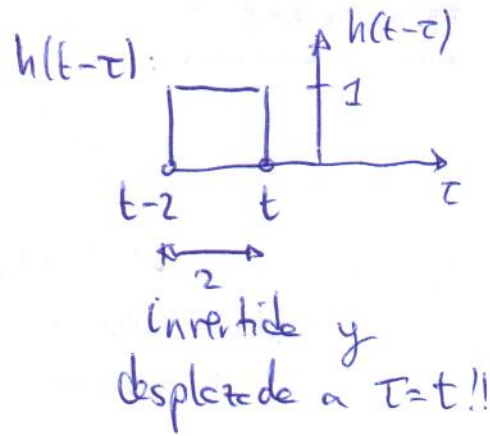 h(t-τ):
h(t-τ)
1
t-2 t
τ
2
invertida y
desplazada a τ=t!!